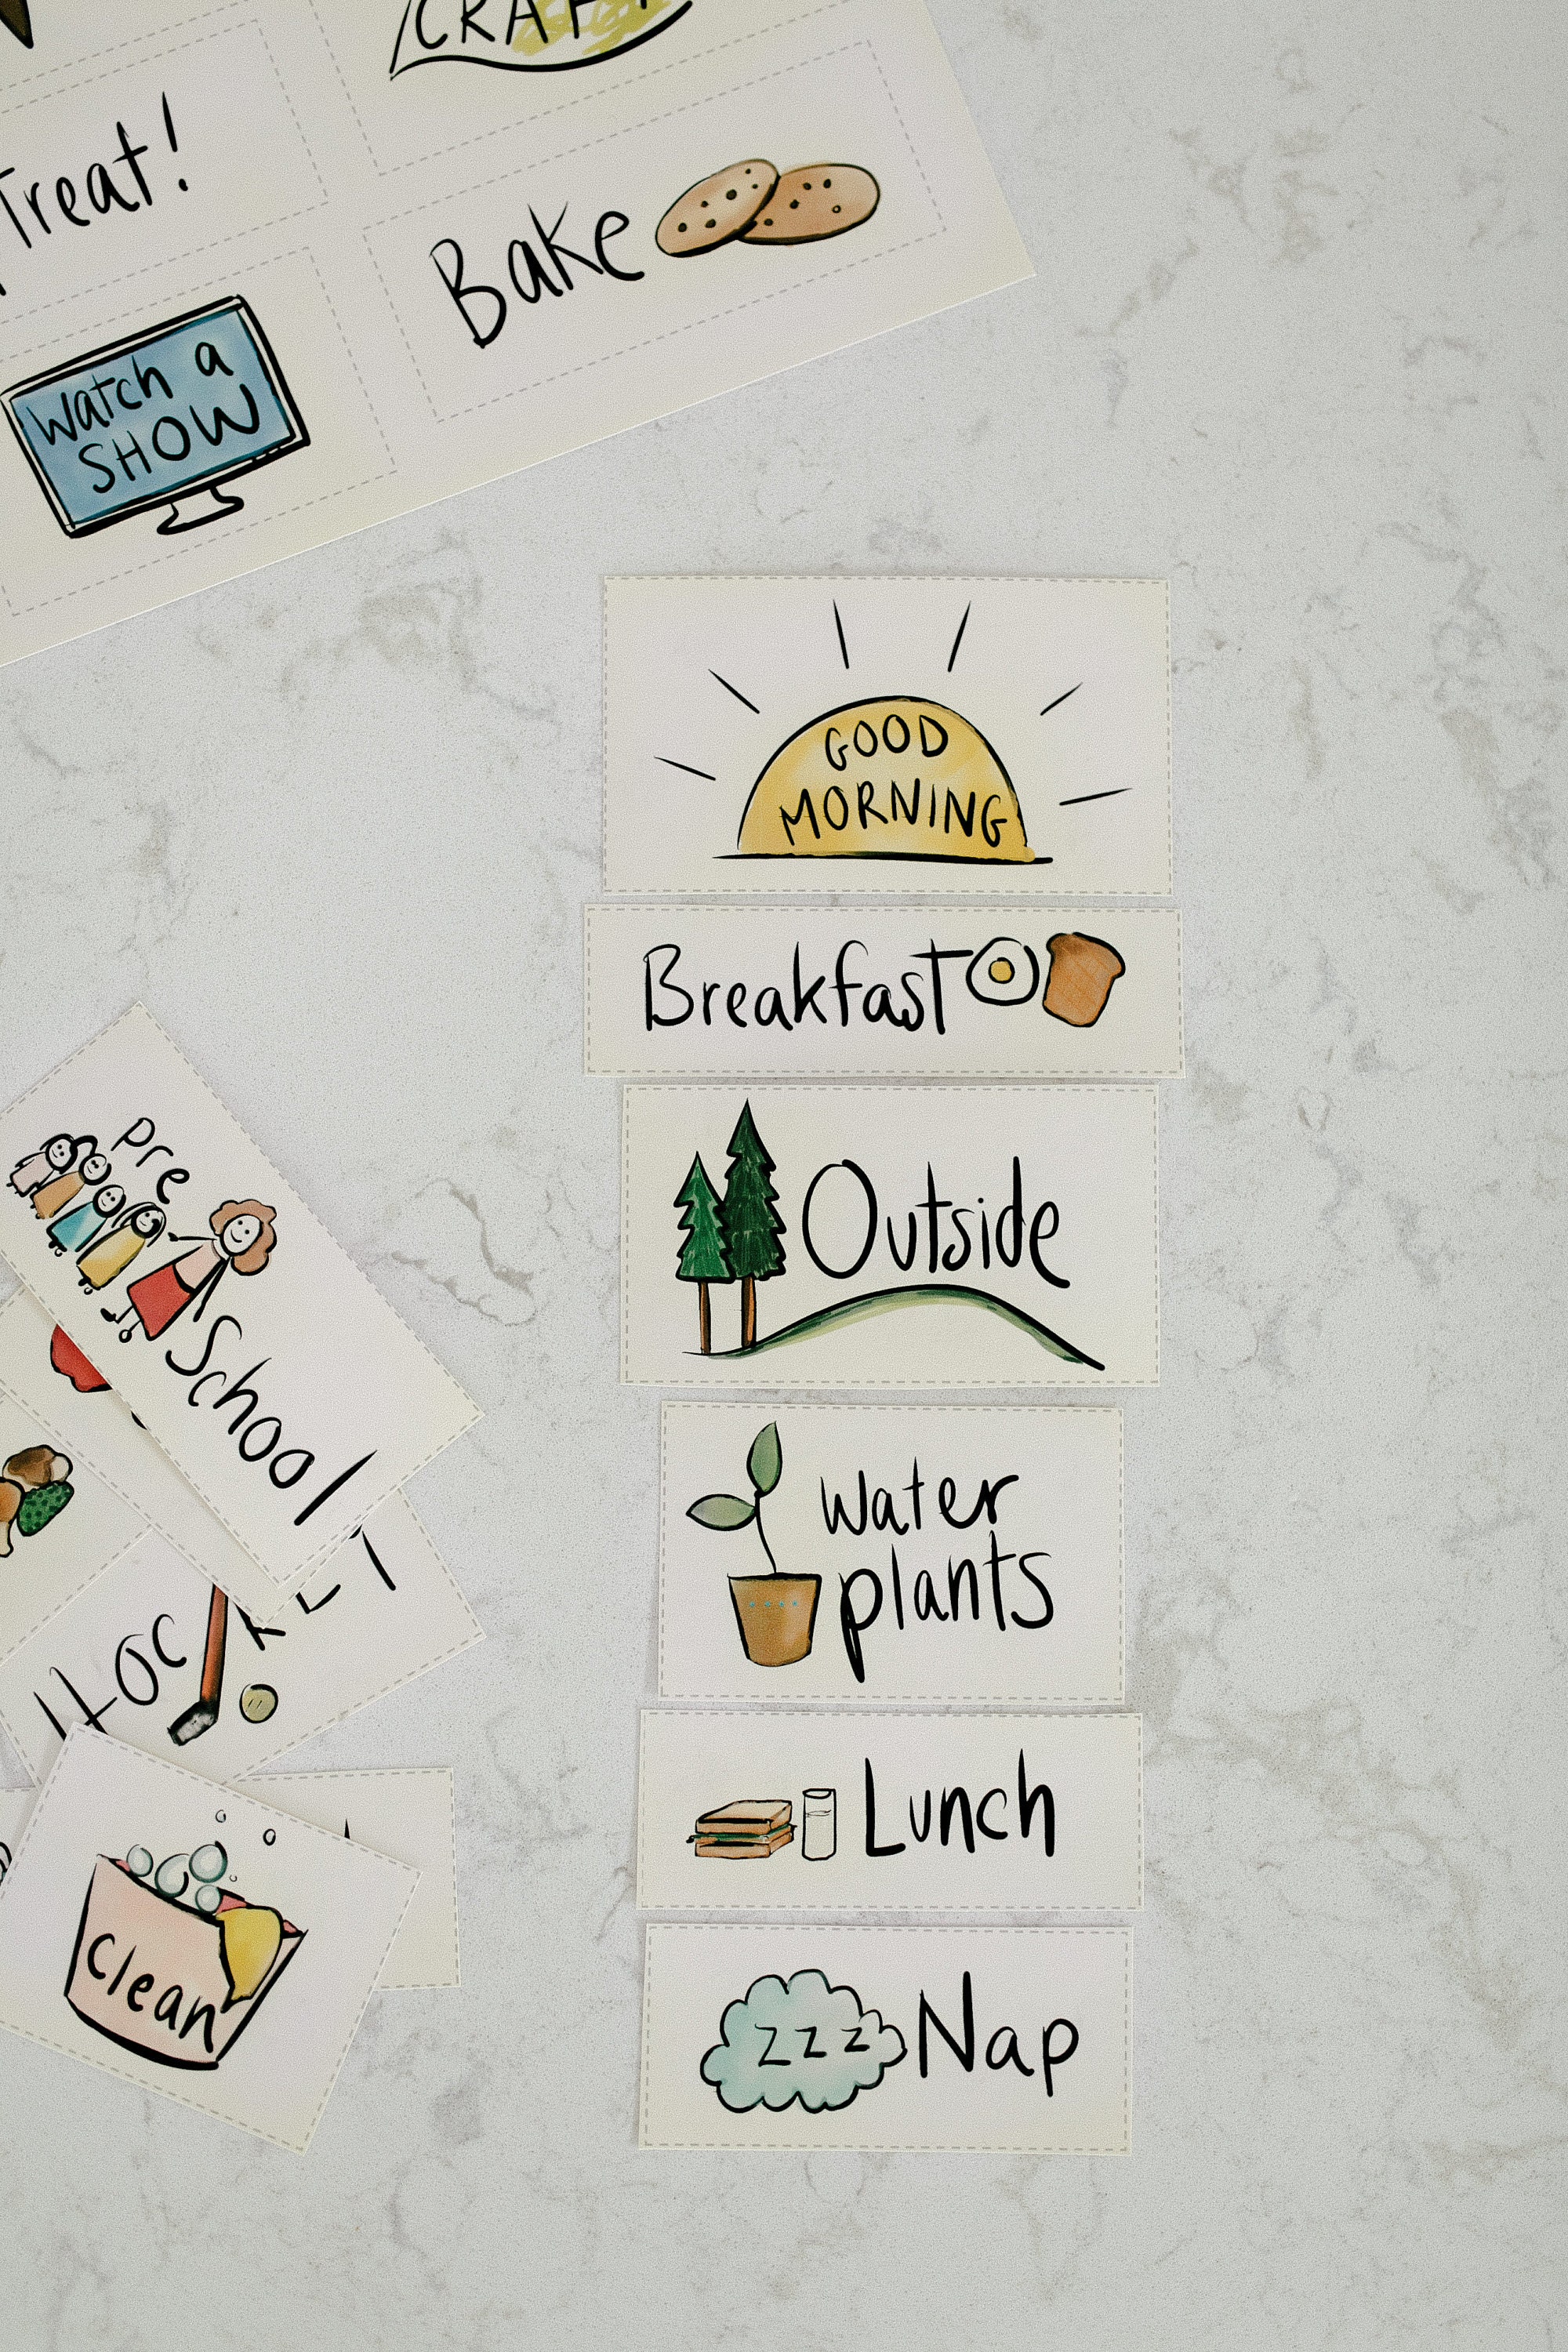 CRAFT
Treat!
Bake
Watch a
SHOW
GOOD
MORNING
Breakfast
Outside
Water
plants
Lunch
zzz Nap
Pre
School
Clean